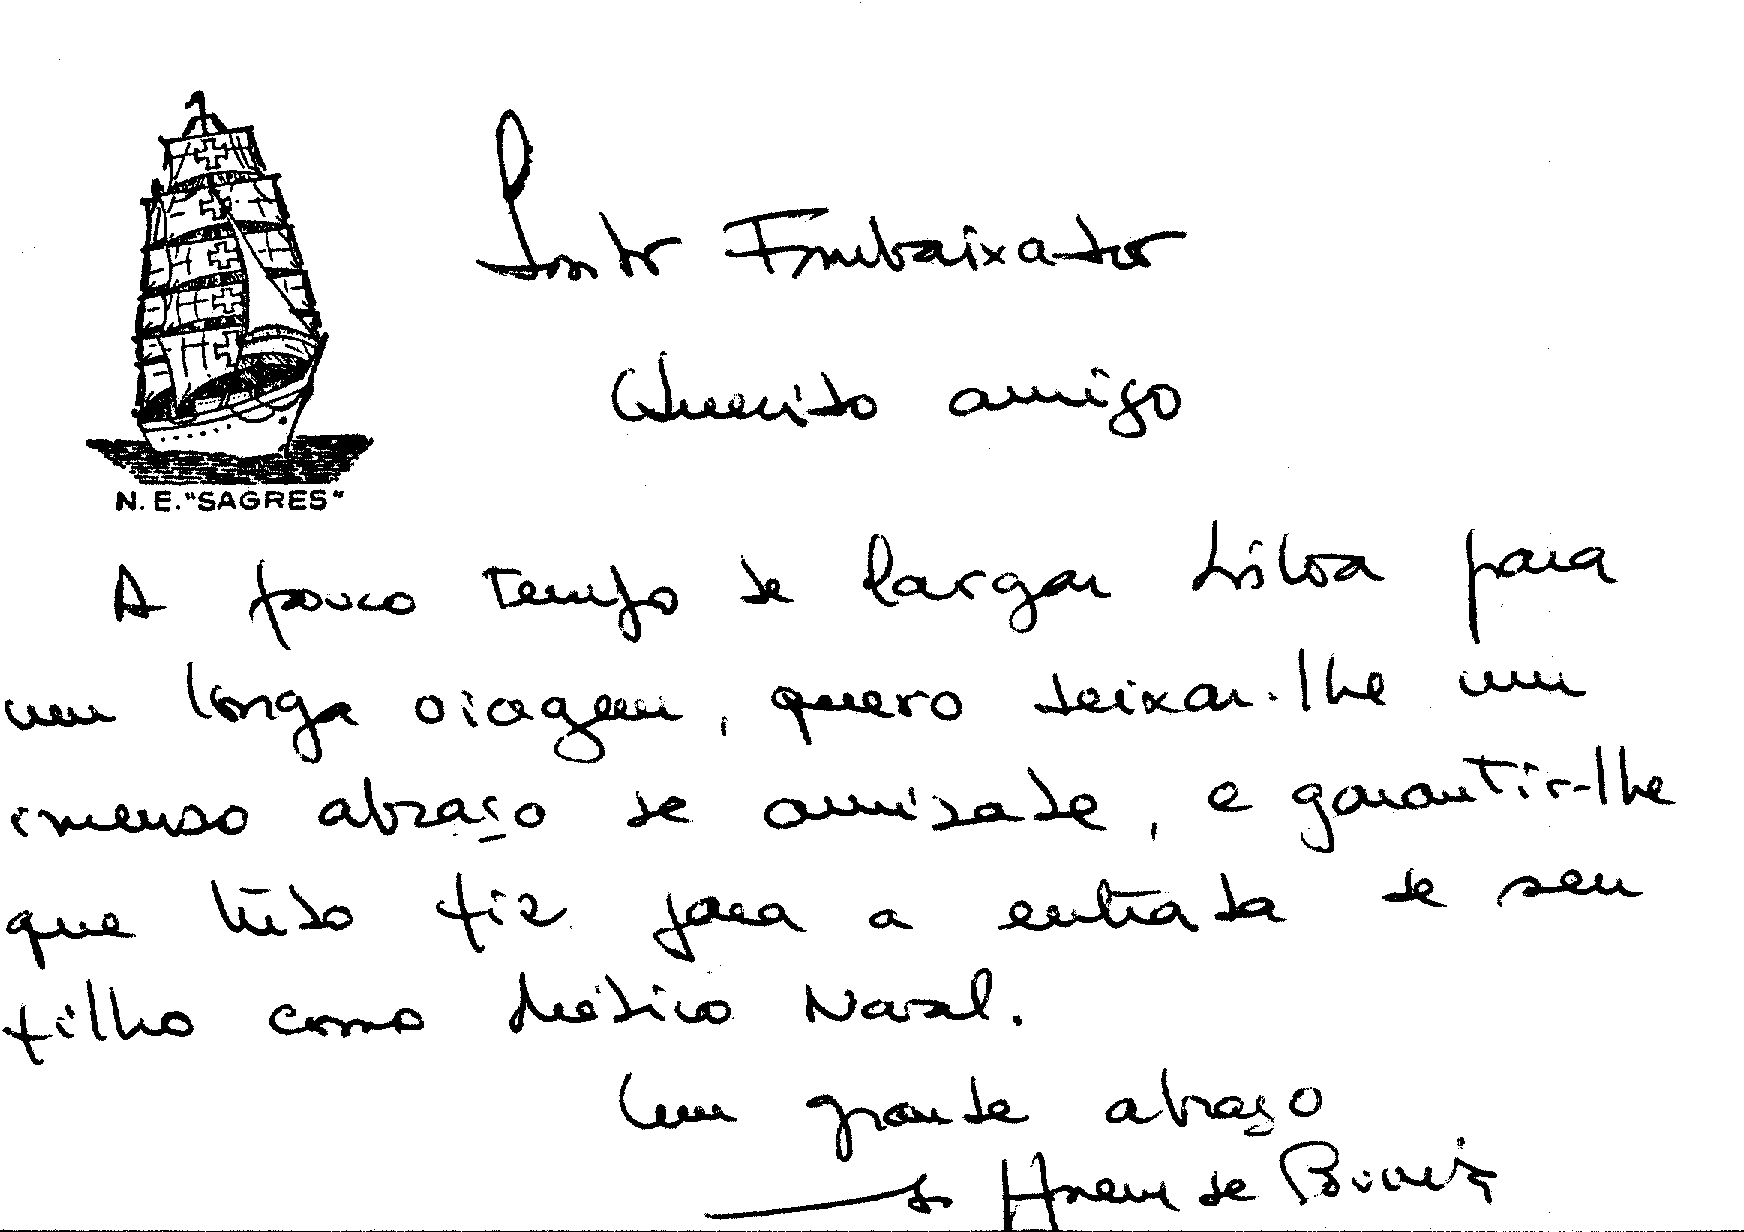 N. E. "SAGRES"
Embaixador
Querido amigo
A pouco tempo de largar Lisboa para
um longa viagem, quero deixar-lhe um
imenso abraço de amizade, e garantir-lhe
que tudo fiz para a entrada de seu
filho como Médico Naval.
Um grande abraço
do Homem de